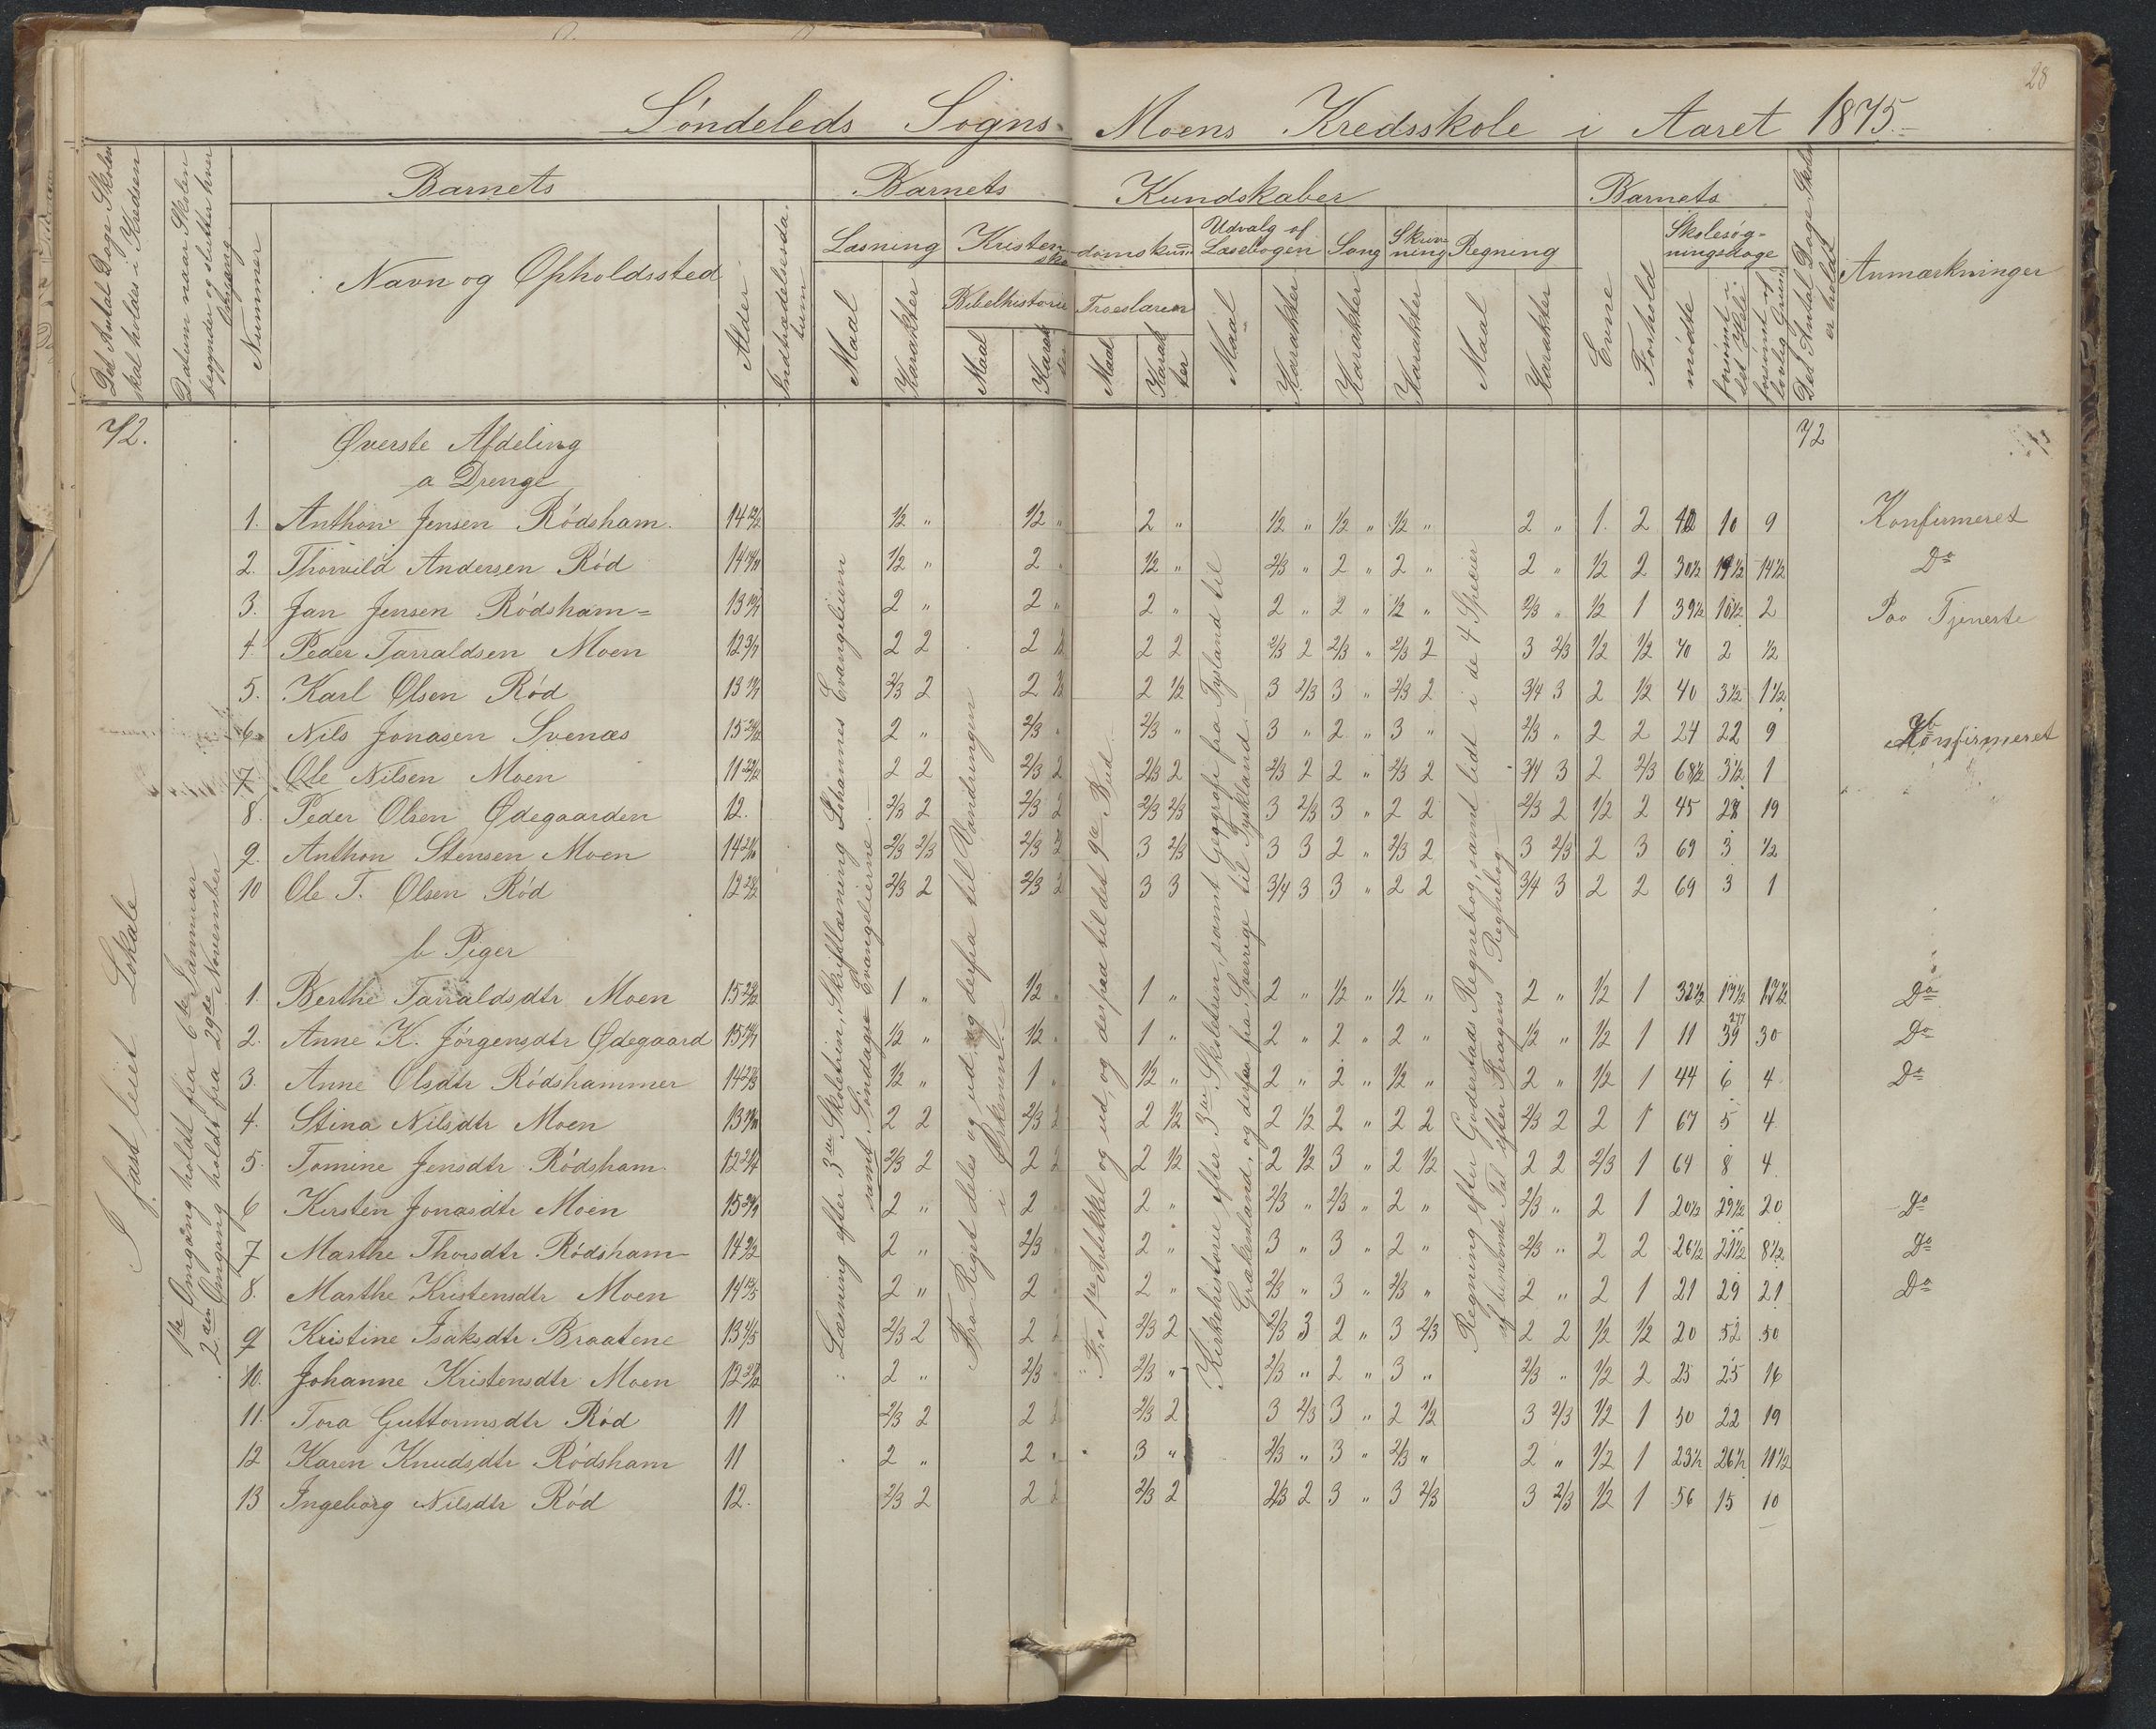 28
Söndeleds Sogns Moens Kredsskole i Aaret 1875.
Det Antal Dage Skolen skal holdes i Kredsen
Datum naar Skolen begynder og slutter hver Omgang
Nummer
Barnets
Navn og Opholdssted
Alder
Indtrædelsesdatum
Barnets Kundskaber
Læsning
Maal
Karakter
Kristendomskundskab
Bibelhistorie
Maal
Karakter
Troeslæren
Maal
Karakter
Udvalg af Læsebogen
Maal
Karakter
Sang
Karakter
Skrivning
Karakter
Regning
Maal
Karakter
Barnets
Evne
Forhold
Skolesøgningsdage
mödte
forsömt
Det Antal Dage Skolen er holdt
Anmærkninger
72.
I fast leiet Lokale
1ste Omgang holdt fra 6te Januar
2den Omgang holdt fra 29de November
Læsning efter 3die Skoletrin, Skriftlæsning Johannes Evangelium
samt Söndags Evangelierne
Fra Riget deles og ud, og derfra til Vandringen
i Örkenen
Fra 1ste Artikkel og ud, og desfra til det 9de Bud
Kirkehistorie efter 3die Skoletrin, samt Geografi fra Tyskland til
Grækenland, og derfra fra Sverrige til Tyskland
Regning efter Goderstads Regnebog, samt lidt i de 4 Specier
af benevnte Tal efter Kragens Regnebog
72
Øverste Afdeling
a Drenge
1. Anthon Jensen Rödsham. 14 ½ „ ½ „ 2 „ ½ „ ½ „ ½ „ 2 „ 1. 2 42 10 9 Konfirmeret
2. Thorvild Andersen Röd 14 ½ „ 2 „ ½ „ 2/3 „ 2 „ 2 „ 2 „ ½ 2 30½ 19½ 14½ Do
3. Jan Jensen Rödsham 13 2 „ 2 „ 2 „ 2 „ 2 „ ½ „ 2/3 „ ½ 1 39½ 10½ 2 Paa Tjeneste
4. Peder Tarraldsen Moen 12 2 2 2 ½ 2 2 2/3 2 2/3 „ 2/3 2 3 2/3 ½ ½ 70 2 ½
5. Karl Olsen Röd 13 2/3 2 2 ½ 2 ½ 3 2/3 3 „ 2/3 2 3/4 3 2 ½ 40 3½ 1½
6 Nils Jonasen Svenæs 15 2 „ 2/3 „ 2/3 „ 3 „ 2 „ 3 „ 2/3 „ 2 2 24 22 9 Konfirmeret
7 Ole Nilsen Moen 11 2 2 2/3 2 2/3 2 2/3 2 2 „ 2/3 2 3/4 3 2 2/3 68½ 3½ 1
8. Peder Olsen Ødegaarden 12. 2/3 2 2/3 2 2/3 2/3 3 2/3 3 „ 2 2 2/3 2 ½ 2 45 28 19
9. Anthon Stensen Moen 14 2/3 2/3 2/3 2 3 2/3 3 3 2 „ 2/3 2 3 2/3 2 3 69 3 ½
10 Ole T. Olsen Röd 12 2/3 2 2/3 2 3 3 3/4 3 3 „ 2 2 3/4 3 2 2 69 3 1
b Piger
1. Berthe Tarraldsdtr Moen 15 1 „ ½ „ 1 „ 2 „ ½ „ ½ „ 2 „ ½ 1 32½ Do
2. Anne K. Jörgensdtr Ødegaard 15 ½ „ ½ „ 1 „ 2 „ 2 „ 2 „ ½ „ ½ 1 11 39 30 Do
3. Anne Olsdtr Rödshammer 14 ½ „ 1 „ ½ „ 2 „ 2 „ ½ „ 2 „ ½ 1 44 6 4 Do
4. Stina Nilsdtr Moen 13 2 2 2/3 2 2 ½ 2 ½ 2 „ 2 2 2/3 2 2 1 67 5 4
5. Tomine Jensdtr Rödsham. 12 2/3 2 2 2 2 ½ 2 ½ 3 „ 2 ½ 2 2 2/3 1 64 8 4
6 Kirsten Jonasdtr Moen 15 2 „ 2 „ 2 „ 2/3 „ 2/3 „ 2 „ 2/3 „ 2 1 20½ 29½ 20 Do
7 Marthe Thorsdtr Rödsham 14 2 „ 2/3 „ 2 „ 3 „ 3 „ 2 „ 2/3 „ 2 2 26½ 21½ 8½ Do
8. Marthe Kristensdtr Moen 14 2 „ 2 „ 2 „ 2/3 „ 3 „ 2/3 „ 2 „ 2 1 21 29 21 Do
9 Kristine Isaksdtr Braatene 13 2/3 2 2 2 2/3 2 2/3 3 2 „ 3 2/3 2 2 ½ ½ 20 52 50
10. Johanne Kristensdtr Moen 12 2 „ 2/3 „ 2/3 „ 2/3 „ 2 „ 3 „ 2/3 „ ½ 2 25 25 16
11. Tora Guttormsdtr Röd 11 2/3 2 2 2 2/3 2 3 2/3 3 „ 2 ½ 3 2/3 ½ 1 50 22 19
12 Karen Knudsdtr Rödsham 11 2 „ 2 „ 3 „ 2/3 „ 3 „ 2/3 „ 2 „ ½ 1 23½ 26½ 11½
13 Ingeborg Nilsdtr Röd 12. 2/3 2 2 2 2/3 2 2/3 2 3 „ 3 2/3 3 2/3 ½ 1 56 15 10